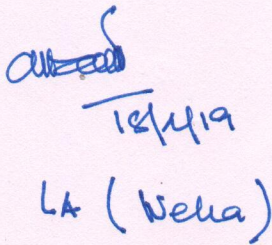 18/1/19
LA (Neha)